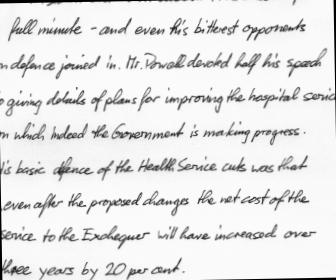 full minute - and even his bitterest opponents
n defence joined in. Mr. Powell devoted half his speech
o giving details of plans for improving the hospital servic
n which indeed the Government is making progress.
is basic defence of the Health Service cuts was that
even after the proposed changes the net cost of the
service to the Exchequer will have increased over
three years by 20 per cent.